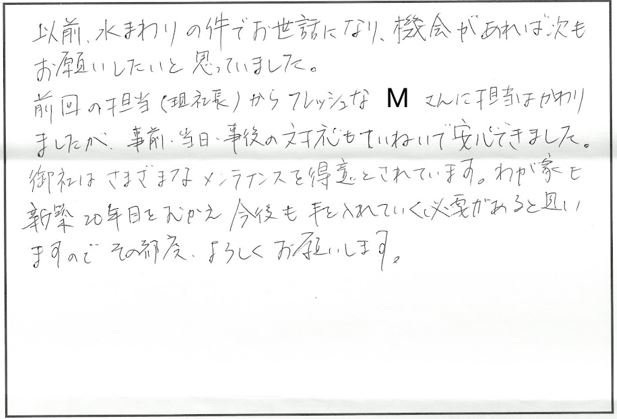 以前、水まわりの件でお世話になり、機会があれば次も
お願いしたいと思っていました。
前回の担当(現社長)からフレッシュな M さんに担当はかわり
ましたが、事前・当日・事後の対応もていねいで安心できました。
御社はさまざまなメンテナンスを得意とされています。わが家も
新築20年目をむかえ今後も手を入れていく必要があると思い
ますので その都度、よろしくお願いします。